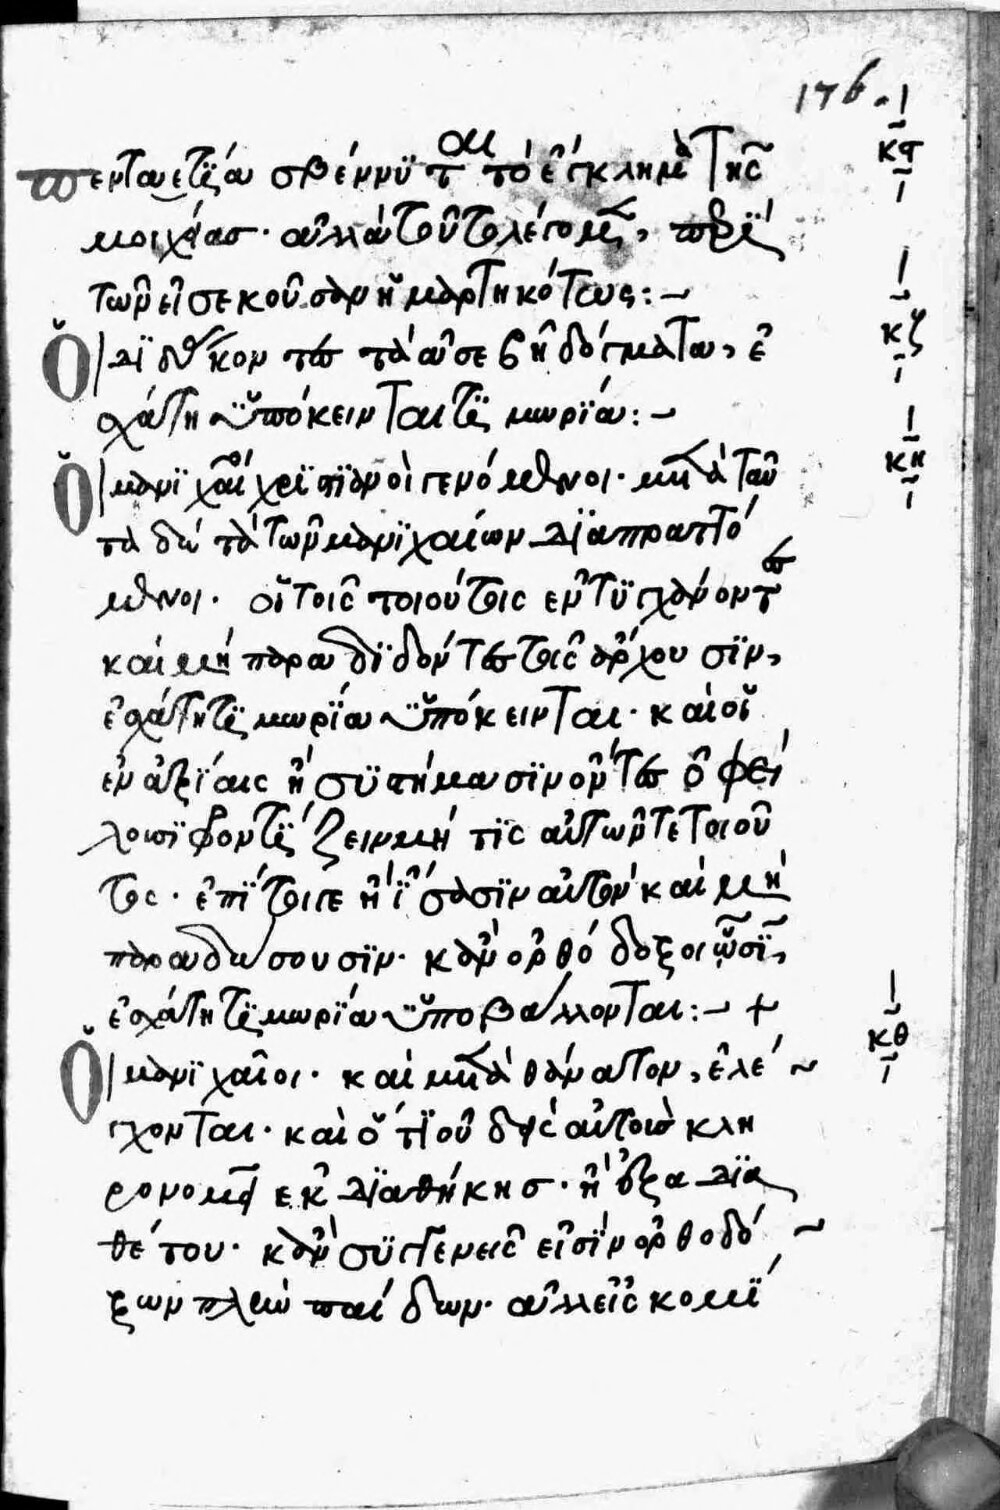 176.
κϛ
πενταετία σβέννυται τὸ ἔγκλημα τῆς
μοιχείας· ἀλλὰ τοῦτο λέγομεν, περὶ
τῶν εἰς ἑκοῦσαν ἡμαρτηκότων:~
κζ
Ὁ διδάσκων τὰ ἀσεβῆ δόγματα, ἐ
σχάτη ὑπόκεινται τιμωρία:~
κη
Οἱ μανιχαῖοι χριστιανοὶ γενόμενοι· μετὰ ταῦ
τα δὲ τὰ τῶν μανιχαίων διαπραττό
μενοι· ἢ τοῖς τοιούτοις ἐντυγχάνοντες
καὶ μὴ παραδιδόντες τοῖς ἄρχουσιν,
ἐσχάτη τιμωρία ὑπόκεινται· καὶ οἱ
ἐν ἀξίαις ἢ συστήμασιν ὄντες ὀφεί
λουσι φροντίζειν μή τις αὐτῶν ἐστὶ τοιοῦ
τος· ἐπεί τοι γε ἢ ἴσασιν αὐτὸν καὶ μὴ
παραδώσουσιν· κἂν ὀρθόδοξοι ὦσιν,
ἐσχάτη τιμωρία ὑποβάλλονται:~ +
κθ
Οἱ μανιχαῖοι· καὶ μετὰ θάνατον, ἐλέ
γχονται· καὶ ὅτι οὐδεὶς αὐτοῖς κλη
ρονομεῖ ἐκ διαθήκης· ἢ ἐξ ἀδια
θέτου· κἂν συγγενεῖς εἰσὶν ὀρθοδό
ξων πλὴν παίδων· ἀλλ' εἰσκομί